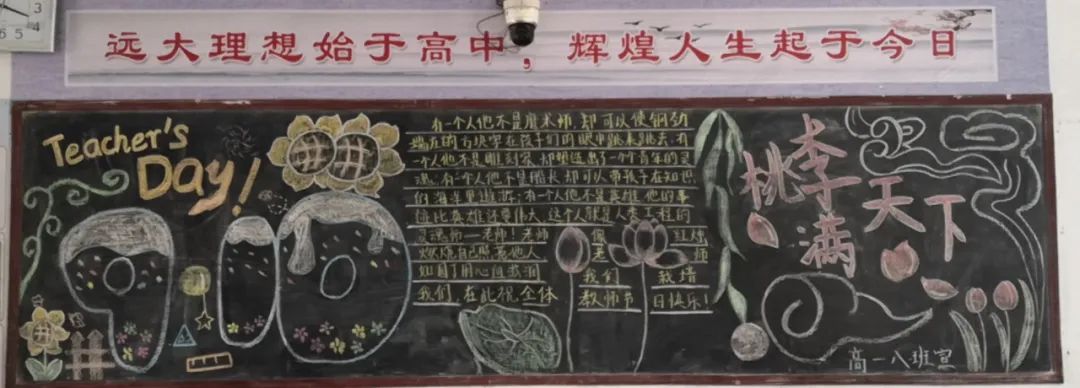 远大理想始于高中，辉煌人生起于今日
Teacher's
Day!
9.10
有一个人他不是魔术师,却可以使钢劲
端正的方块字在孩子们的眼中跳来跳去,有
一个人他不是雕刻家,却塑造出了一个个青年的灵
魂,有一个人他不是船长,却可以带孩子在知识
的海洋里遨游,有一个人他不是英雄,他的事
迹比英雄还要伟大,这个人就是人类工程的
灵魂师—老师!老师 像 红烛
燃烧自己照亮他人 老 师
如园丁用心血浇润 我们 栽培
我们,在此祝全体 教师节 日快乐!
桃李满
天下
高一八班宣